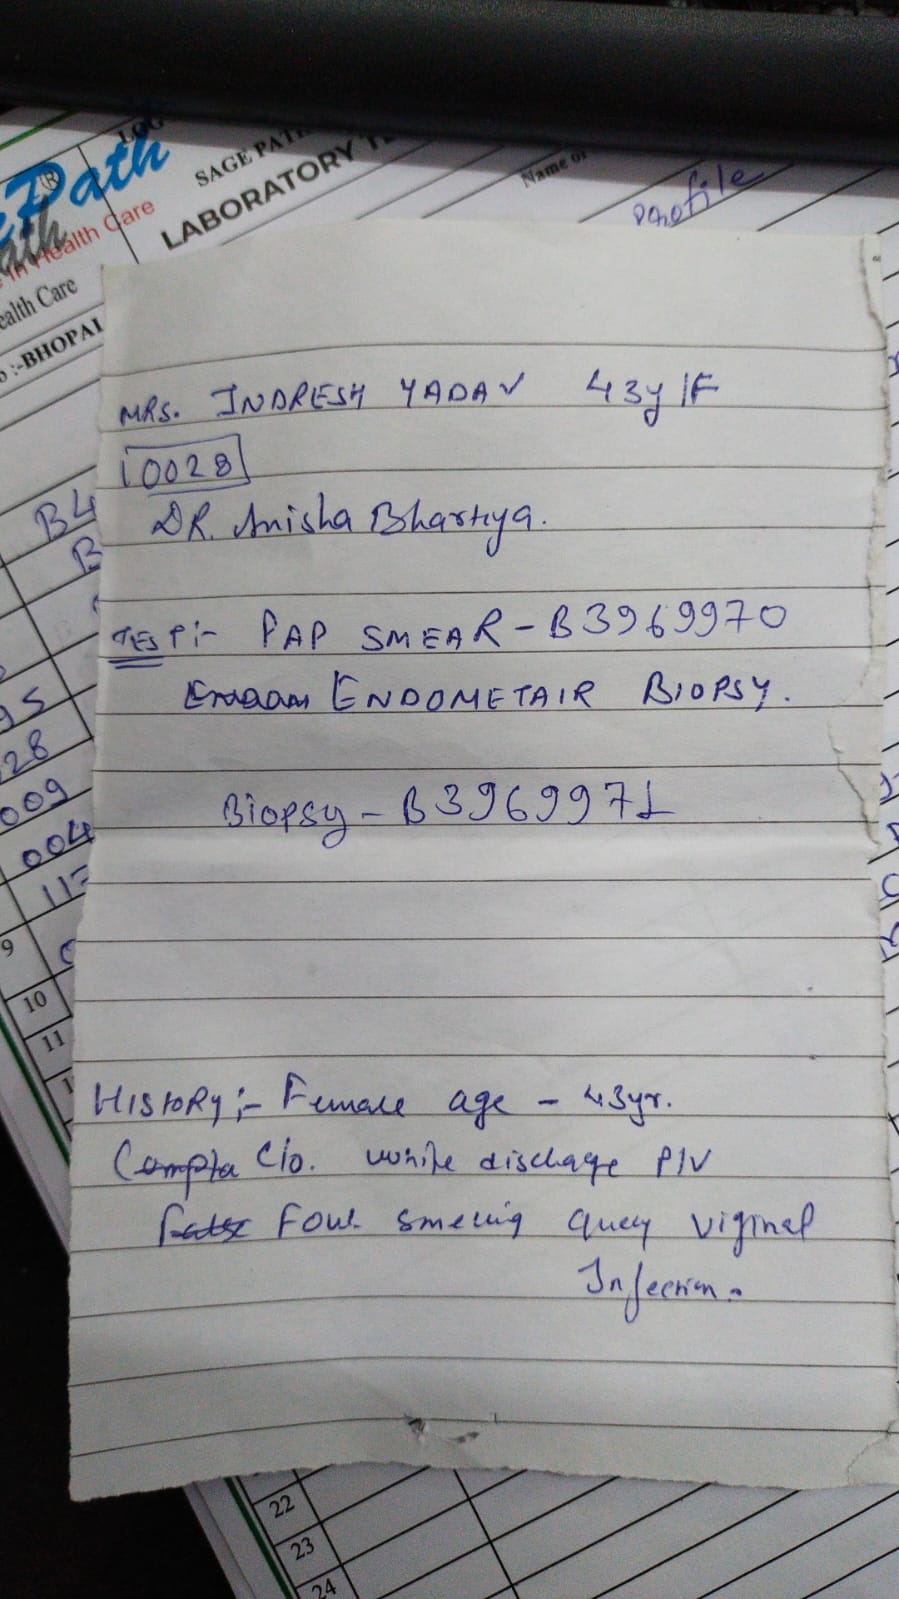 LOG
Path
ath
SAGE PATH
LABORATORY T
Name of
profile
in Health Care
ealth Care
o :-BHOPAL
MRS. INDRESH YADAV 43y/F
10028
DR. Anisha Bhartiya.
TEST:- PAP SMEAR - B3969970
ENDOMETAIR BIOPSY.
Biopsy - B3969971
HISTORY:- Female age - 43yr.
Compla C/o. white discharge P/V
Foul smelling query viginal
Infection.
B4
B
95
28
009
004
117
9
10
11
22
23
24